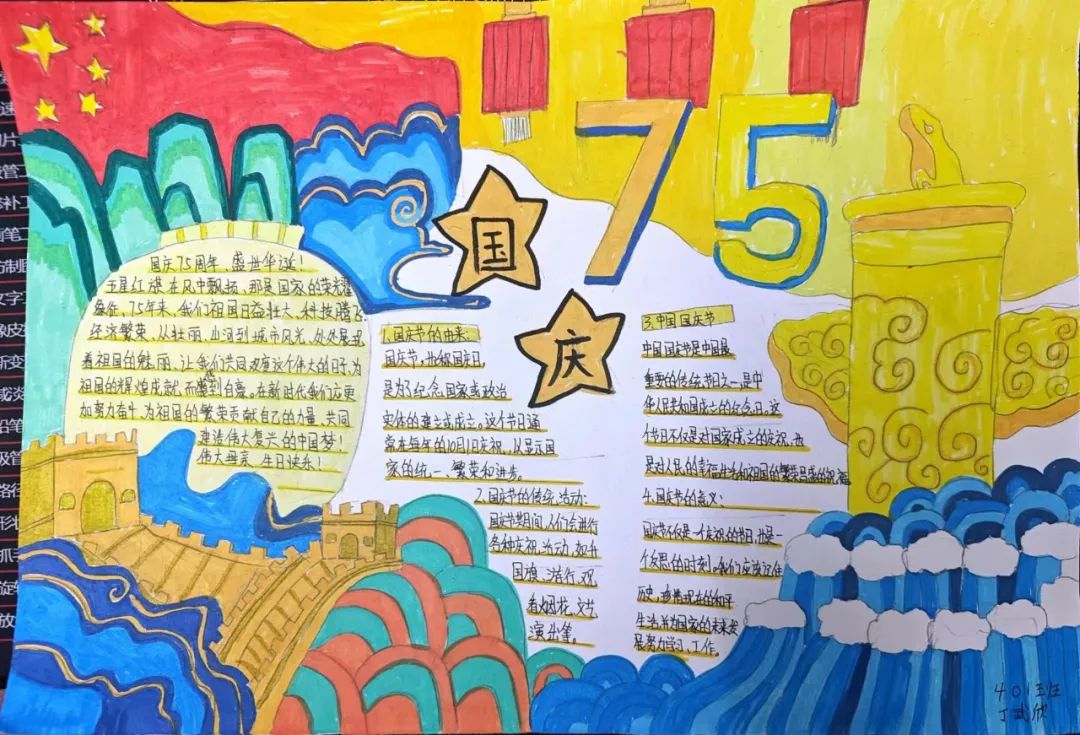 75
国
庆
国庆75周年，盛世华诞！
五星红旗在风中飘扬、那是国家的荣耀
象征，75年来、我们祖国日益壮大、科技腾飞
经济繁荣、从壮丽、山河到城市风光、处处展现
着祖国的魅丽、让我们共同欢度这个伟大的日子，为
祖国的辉煌成就而感到自豪。在新时代我们应更
加努力奋斗，为祖国的繁荣贡献自己的力量、共同
建造伟大复兴的中国梦！
伟大母亲、生日快乐！
1.国庆节的由来：
国庆节，也称国庆日，
是为了纪念国家或政治
实体的建立或成立。这个节日通
常在每年的10月1日庆祝，以显示国
家的统一、繁荣和进步。
2.国庆节的传统活动：
国庆节期间，人们会进行
各种庆祝活动，如升
国旗、游行、观
看烟花、文艺
演出等。
3.中国国庆节
中国国庆节是中国最
重要的传统节日之一，是中
华人民共和国成立的纪念日，这
个节日不仅是对国家成立的庆祝，也
是对人民的幸福生活和祖国的繁荣昌盛的祝福
4.国庆节的意义：
国庆不仅是一个庆祝的节日，也是一
个反思的时刻。我们应该记住
历史，珍惜现在的和平
生活，并为国家的未来发
展努力学习、工作。
401班
丁武欣
速
管
补
画笔
仿制
文字
橡皮
渐变
铅笔
路径
形状
抓手
旋转
放